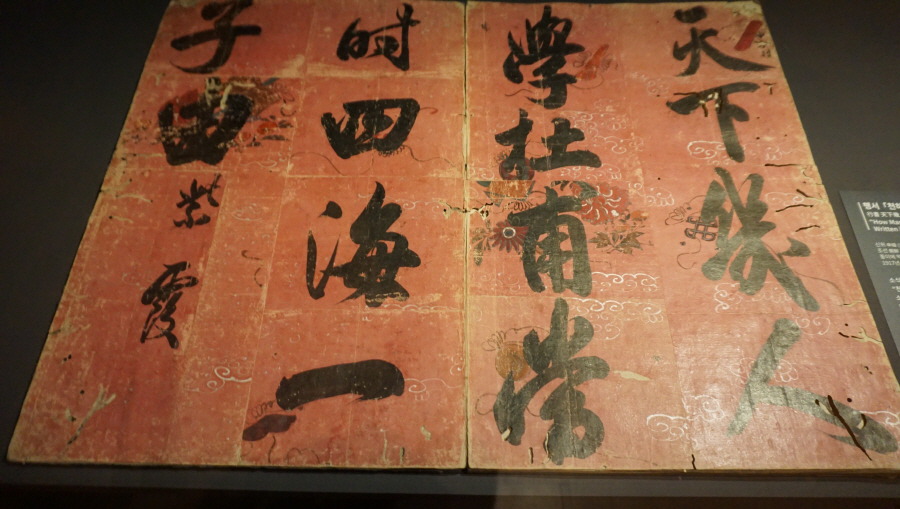 天下幾人
學杜甫常
時四海一
子由
紫霞
행서 「천하
"How Ma
Written